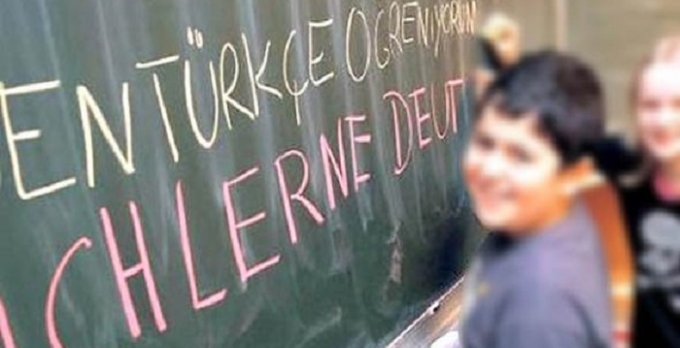 BEN TÜRKÇE ÖĞRENİYORUM
ICH LERNE DEUT